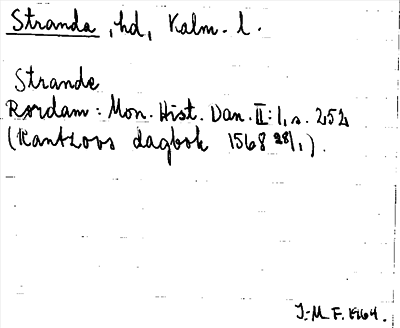 Stranda, hd, Kalm. l.
Strande
Rørdam: Mon. Hist. Dan. II:1, s. 252
(Rantzovs dagbok 1568 28/1).
J.M.F. 1964.